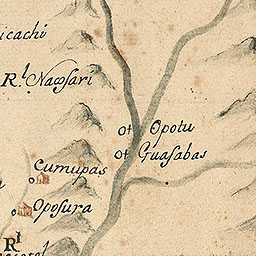 icachi
R.l Nacosari
ot Opotu
ot Guasabas
Cumupas
Oposura
Rl